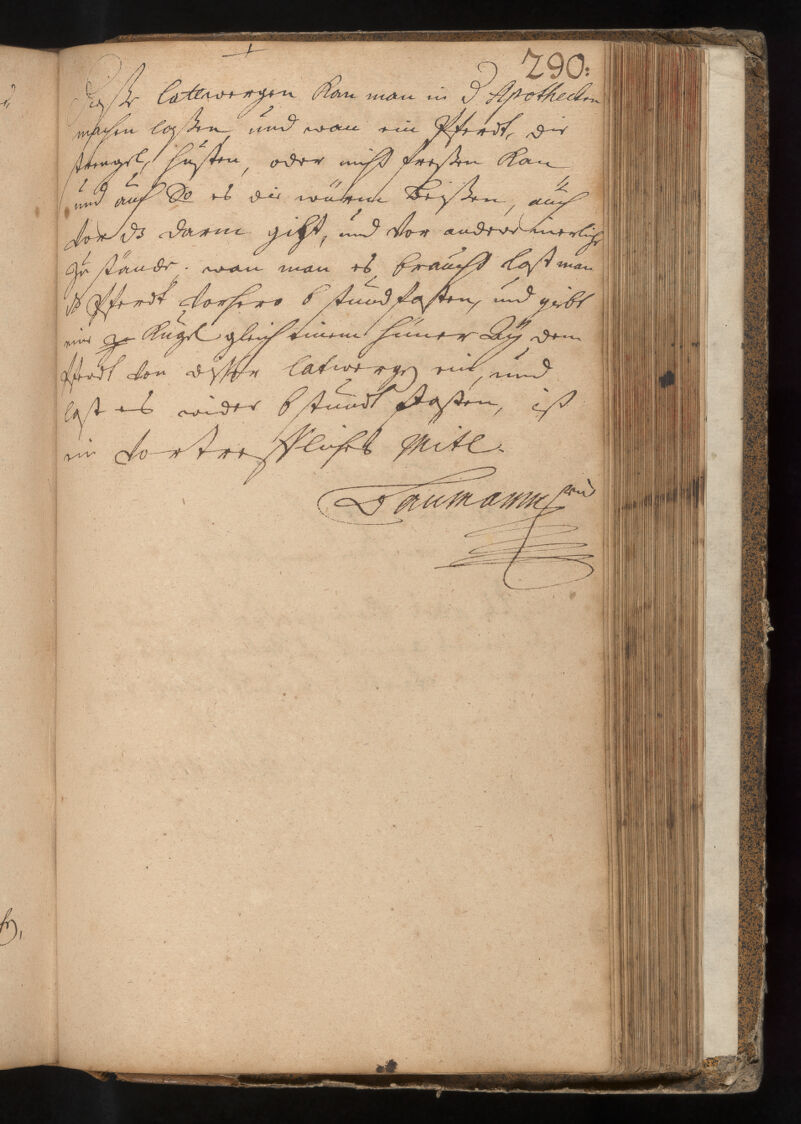 290:
Dise latwergen kan man in d Apothecken
machen laßen, und wan ein Pferdt, die
strengel, husten, oder nicht freßen kan
und auch so es die würm beißen, auch
vor dz darm gicht, und vor andere inerliche
zu stände. wan man es braucht last man
dz Pferdt vorhero 6 stundt fasten, und gibt
eine Kugel gleich einem hüner Ay dem
Pferdt von diser latwergen ein, und
last es wider 6 stundt fasten, ist
ein vortreffliches Mitl.